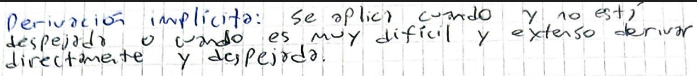 Derivación implícita: Se aplica cuando y no está
despejada o cuando es muy difícil y extenso derivar
directamente y despejada.